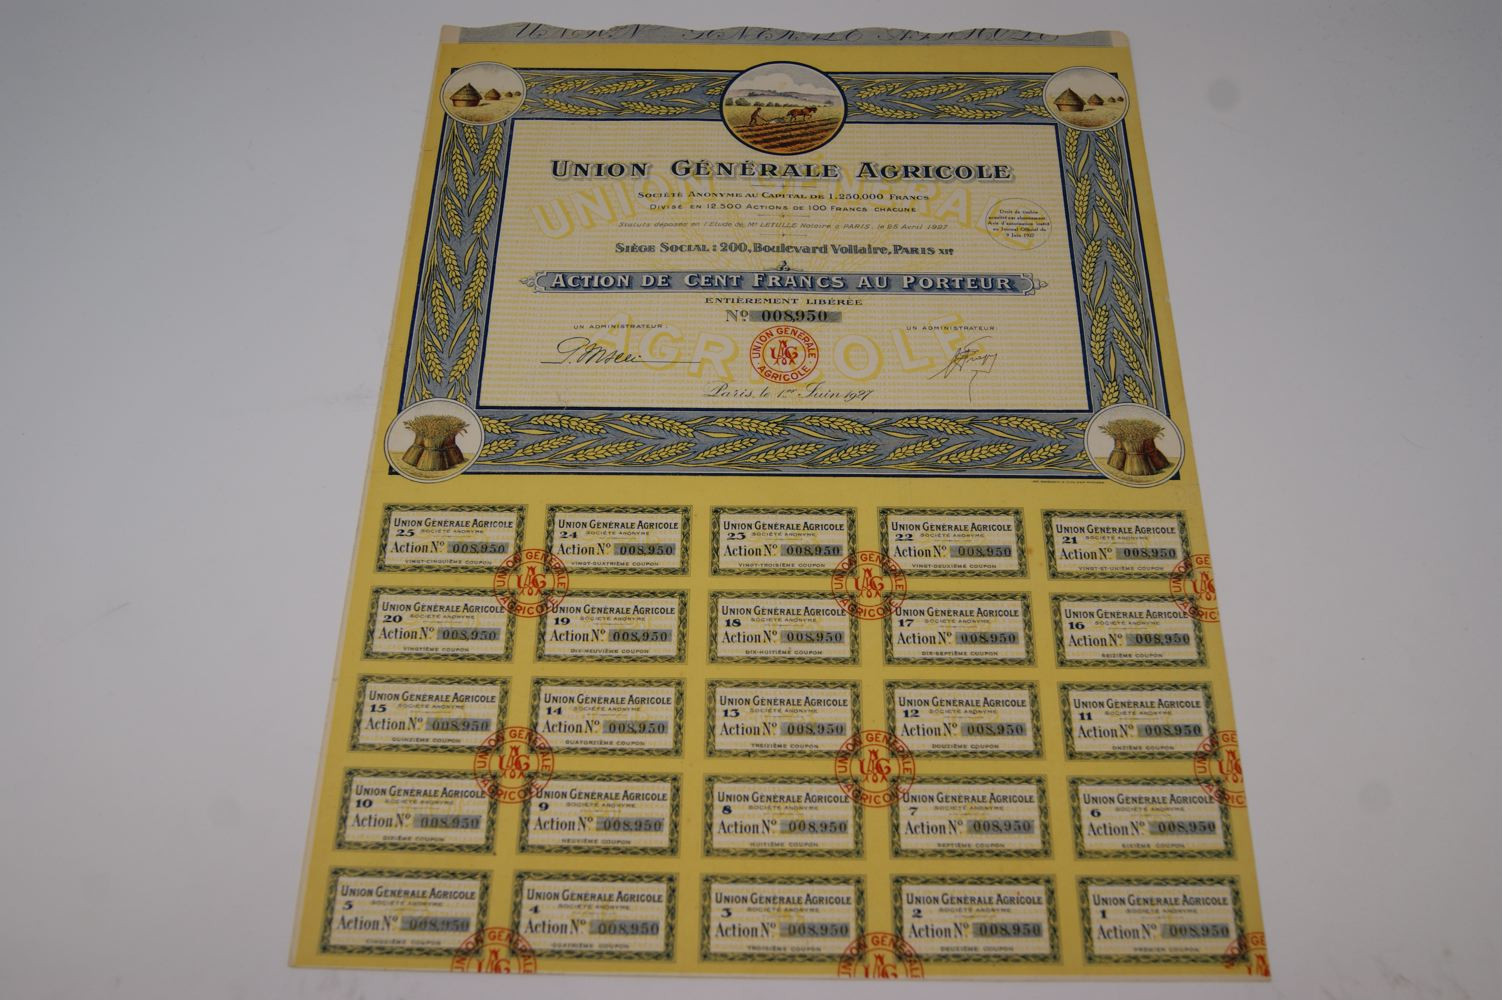 UNION GÉNÉRALE AGRICOLE
SOCIÉTÉ ANONYME AU CAPITAL DE 1.250.000 FRANCS
DIVISÉ EN 12.500 ACTIONS DE 100 FRANCS CHACUNE
Statuts déposés en l'Etude de Me LETULLE Notaire à PARIS, le 25 Avril 1927
SIÈGE SOCIAL : 200, Boulevard Voltaire, PARIS XIe
Droit de timbre
acquitté par abonnement
Avis d'autorisation inséré
au Journal Officiel du
9 Juin 1927
ACTION DE CENT FRANCS AU PORTEUR
ENTIÈREMENT LIBÉRÉE
No 008,950
UN ADMINISTRATEUR :
UN ADMINISTRATEUR :
UNION GÉNÉRALE
UAG
AGRICOLE
Paris, le 1er Juin 1927
UNION GÉNÉRALE AGRICOLE
25 SOCIÉTÉ ANONYME
Action No 008,950
VINGT-CINQUIÈME COUPON
UNION GÉNÉRALE AGRICOLE
24 SOCIÉTÉ ANONYME
Action No 008,950
VINGT-QUATRIÈME COUPON
UNION GÉNÉRALE AGRICOLE
23 SOCIÉTÉ ANONYME
Action No 008,950
VINGT-TROISIÈME COUPON
UNION GÉNÉRALE AGRICOLE
22 SOCIÉTÉ ANONYME
Action No 008,950
VINGT-DEUXIÈME COUPON
UNION GÉNÉRALE AGRICOLE
21 SOCIÉTÉ ANONYME
Action No 008,950
VINGT-ET-UNIÈME COUPON
UNION GÉNÉRALE AGRICOLE
20 SOCIÉTÉ ANONYME
Action No 008,950
VINGTIÈME COUPON
UNION GÉNÉRALE AGRICOLE
19 SOCIÉTÉ ANONYME
Action No 008,950
DIX-NEUVIÈME COUPON
UNION GÉNÉRALE AGRICOLE
18 SOCIÉTÉ ANONYME
Action No 008,950
DIX-HUITIÈME COUPON
UNION GÉNÉRALE AGRICOLE
17 SOCIÉTÉ ANONYME
Action No 008,950
DIX-SEPTIÈME COUPON
UNION GÉNÉRALE AGRICOLE
16 SOCIÉTÉ ANONYME
Action No 008,950
SEIZIÈME COUPON
UNION GÉNÉRALE AGRICOLE
15 SOCIÉTÉ ANONYME
Action No 008,950
QUINZIÈME COUPON
UNION GÉNÉRALE AGRICOLE
14 SOCIÉTÉ ANONYME
Action No 008,950
QUATORZIÈME COUPON
UNION GÉNÉRALE AGRICOLE
13 SOCIÉTÉ ANONYME
Action No 008,950
TREIZIÈME COUPON
UNION GÉNÉRALE AGRICOLE
12 SOCIÉTÉ ANONYME
Action No 008,950
DOUZIÈME COUPON
UNION GÉNÉRALE AGRICOLE
11 SOCIÉTÉ ANONYME
Action No 008,950
ONZIÈME COUPON
UNION GÉNÉRALE AGRICOLE
10 SOCIÉTÉ ANONYME
Action No 008,950
DIXIÈME COUPON
UNION GÉNÉRALE AGRICOLE
9 SOCIÉTÉ ANONYME
Action No 008,950
NEUVIÈME COUPON
UNION GÉNÉRALE AGRICOLE
8 SOCIÉTÉ ANONYME
Action No 008,950
HUITIÈME COUPON
UNION GÉNÉRALE AGRICOLE
7 SOCIÉTÉ ANONYME
Action No 008,950
SEPTIÈME COUPON
UNION GÉNÉRALE AGRICOLE
6 SOCIÉTÉ ANONYME
Action No 008,950
SIXIÈME COUPON
UNION GÉNÉRALE AGRICOLE
5 SOCIÉTÉ ANONYME
Action No 008,950
CINQUIÈME COUPON
UNION GÉNÉRALE AGRICOLE
4 SOCIÉTÉ ANONYME
Action No 008,950
QUATRIÈME COUPON
UNION GÉNÉRALE AGRICOLE
3 SOCIÉTÉ ANONYME
Action No 008,950
TROISIÈME COUPON
UNION GÉNÉRALE AGRICOLE
2 SOCIÉTÉ ANONYME
Action No 008,950
DEUXIÈME COUPON
UNION GÉNÉRALE AGRICOLE
1 SOCIÉTÉ ANONYME
Action No 008,950
PREMIER COUPON